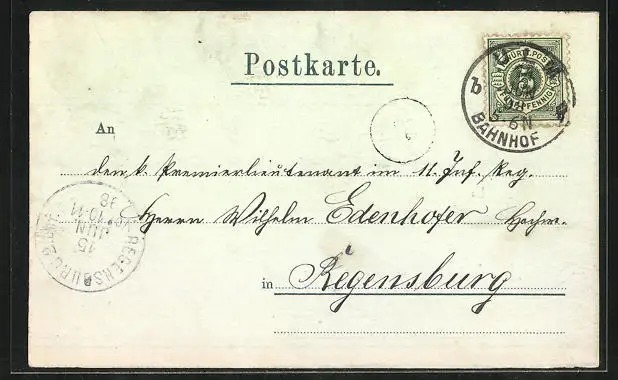 Postkarte.
K. WÜRTT. POST
5
FÜNF PFENNIG
ULM
b
5-6N
BAHNHOF
An
den k. Premierlieutenant im 11. Inf. Reg.
Herrn Wilhelm Edenhofer Hochw.
in Regensburg
REGENSBURG 2
15
JUN
10-11
98